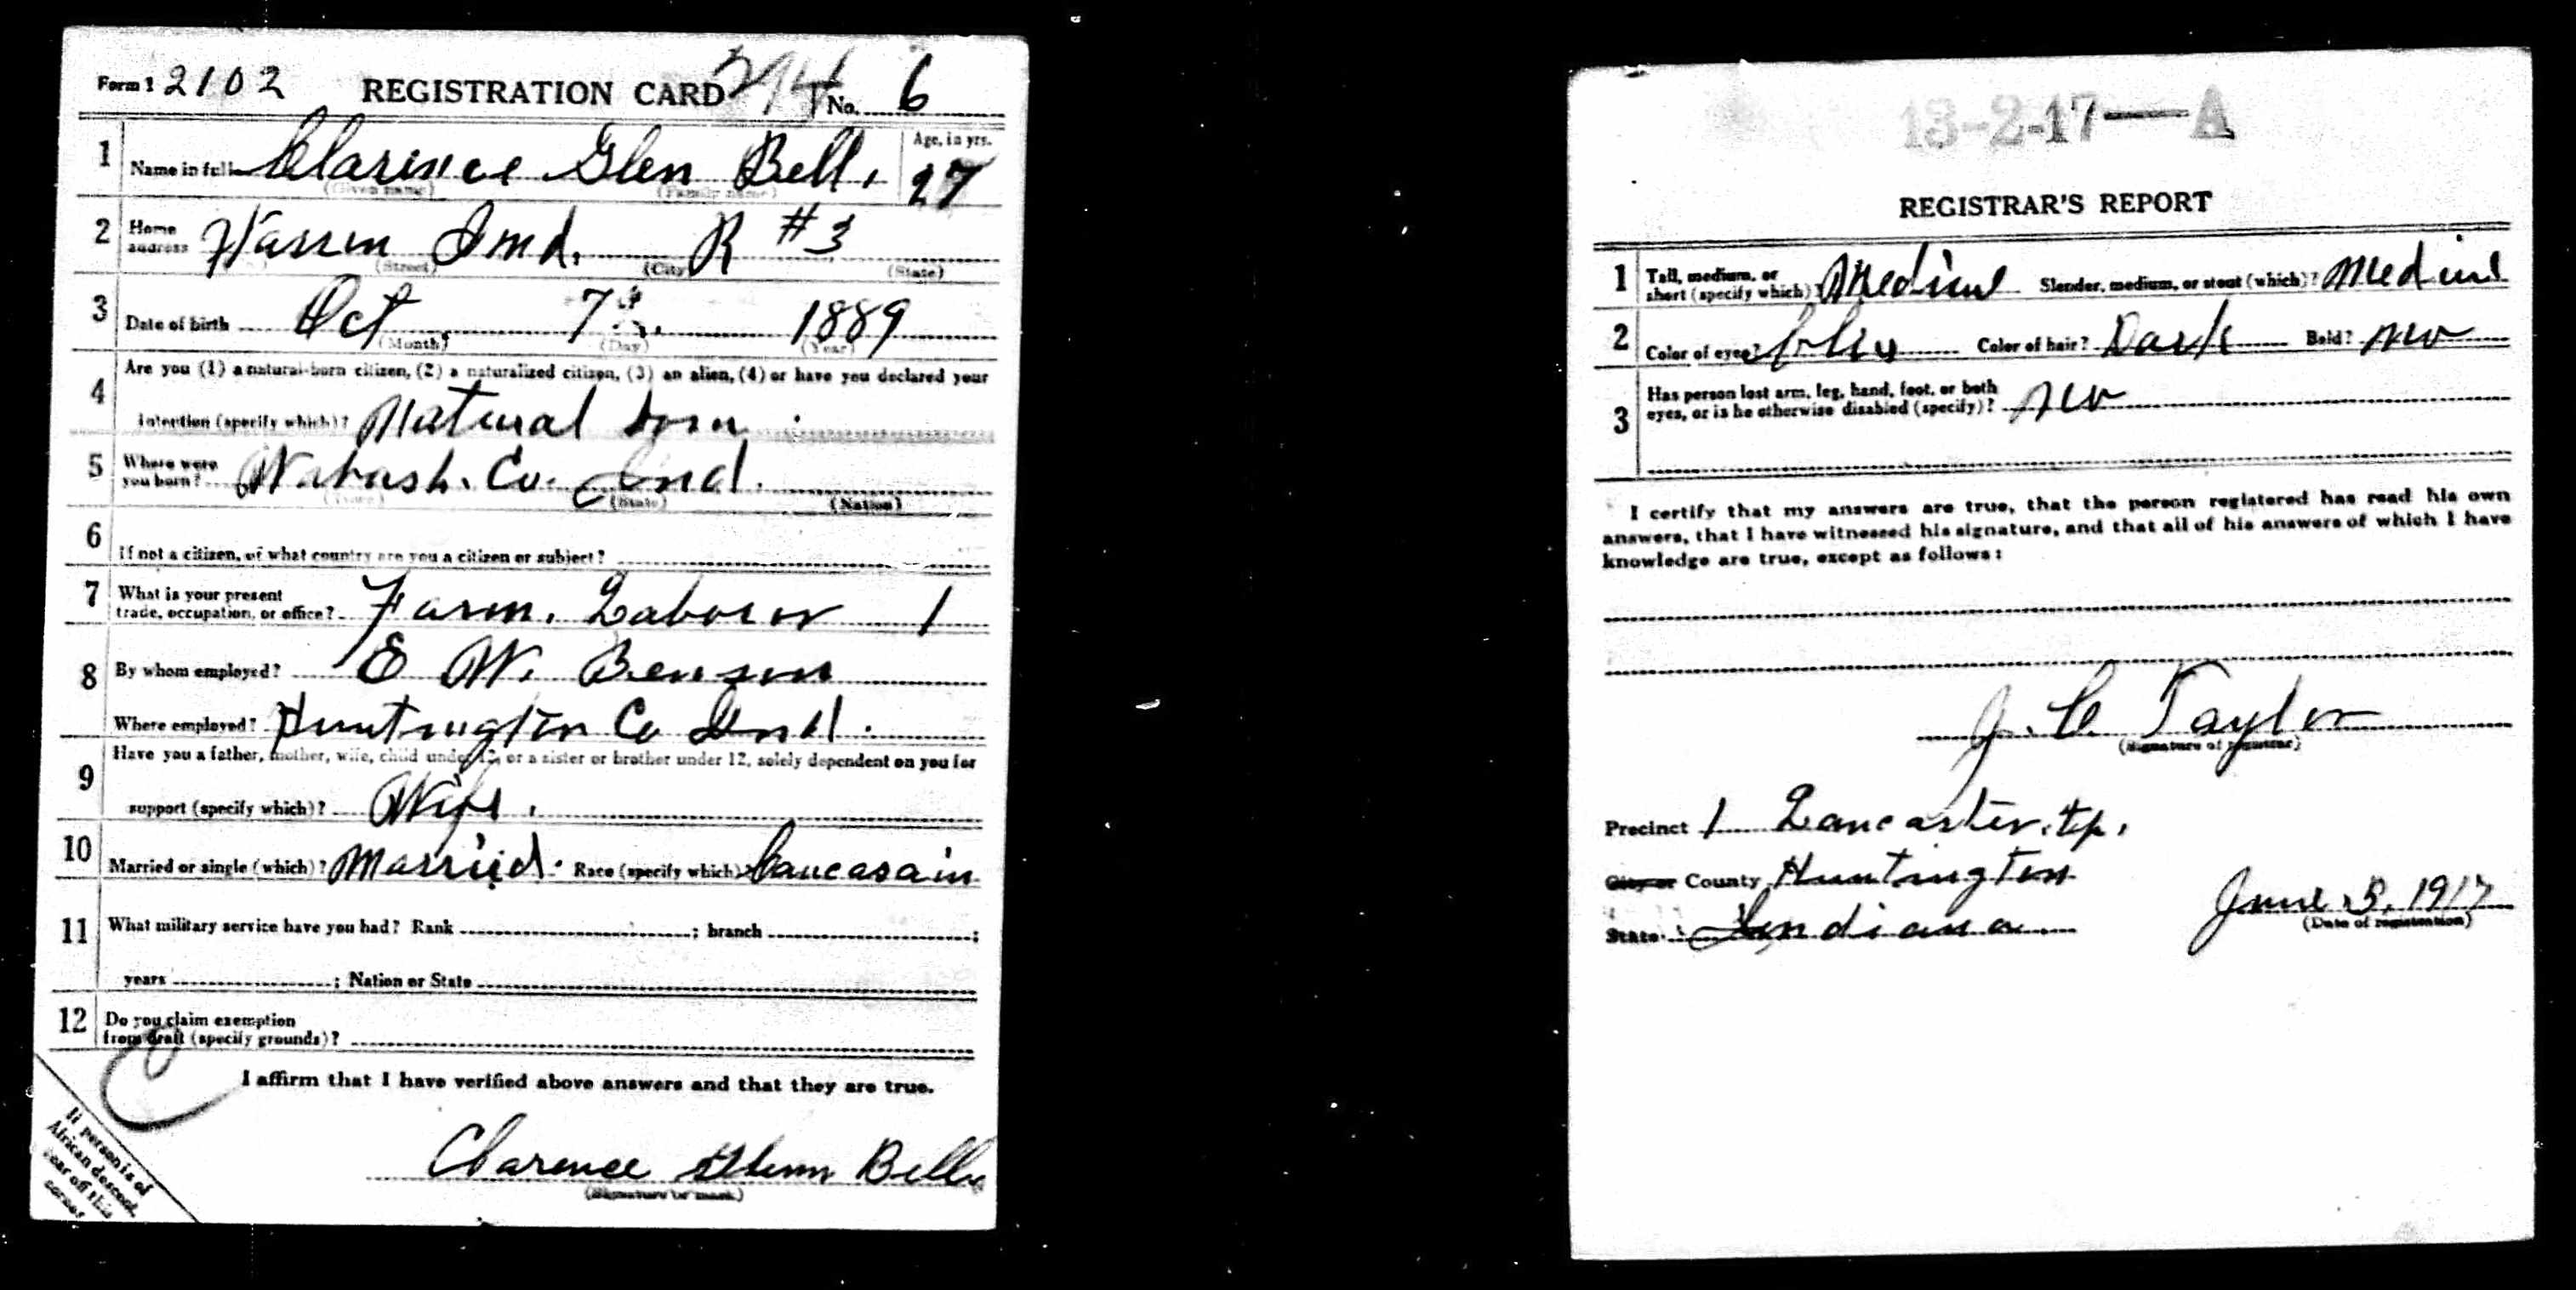 Form 1 2102 REGISTRATION CARD 274 No. 6
1 Name in full Clarence Glen Bell, Age, in yrs. 27
(Given name) (Family name)
2 Home address Warren Ind. R #3
(Street) (City) (State)
3 Date of birth Oct 7 1889
(Month) (Day) (Year)
4 Are you (1) a natural-born citizen, (2) a naturalized citizen, (3) an alien, (4) or have you declared your
intention (specify which)? Natural born
5 Where were you born? Wabash. Co. Ind.
(Town) (State) (Nation)
6 If not a citizen, of what country are you a citizen or subject?
7 What is your present trade, occupation, or office? Farm. Laborer 1
8 By whom employed? E W. Benson
Where employed? Huntington Co Ind.
9 Have you a father, mother, wife, child under 12, or a sister or brother under 12, solely dependent on you for
support (specify which)? Wife.
10 Married or single (which)? Married. Race (specify which)? Caucasain
11 What military service have you had? Rank ; branch ;
years ; Nation or State
12 Do you claim exemption
from draft (specify grounds)?
I affirm that I have verified above answers and that they are true.
Clarence Glenn Bell
(Signature or mark)
If person is of
African descent,
tear off this
corner
13-2-17—A
REGISTRAR'S REPORT
1 Tall, medium, or short (specify which)? Medium Slender, medium, or stout (which)? Medium
2 Color of eyes? blue Color of hair? Dark Bald? no
3 Has person lost arm, leg, hand, foot, or both
eyes, or is he otherwise disabled (specify)? no
I certify that my answers are true, that the person registered has read his own
answers, that I have witnessed his signature, and that all of his answers of which I have
knowledge are true, except as follows:
J. C. Taylor
(Signature of registrar)
Precinct 1 Lancaster. tp.
City or County Huntington
State Indiana. June 5, 1917
(Date of registration)